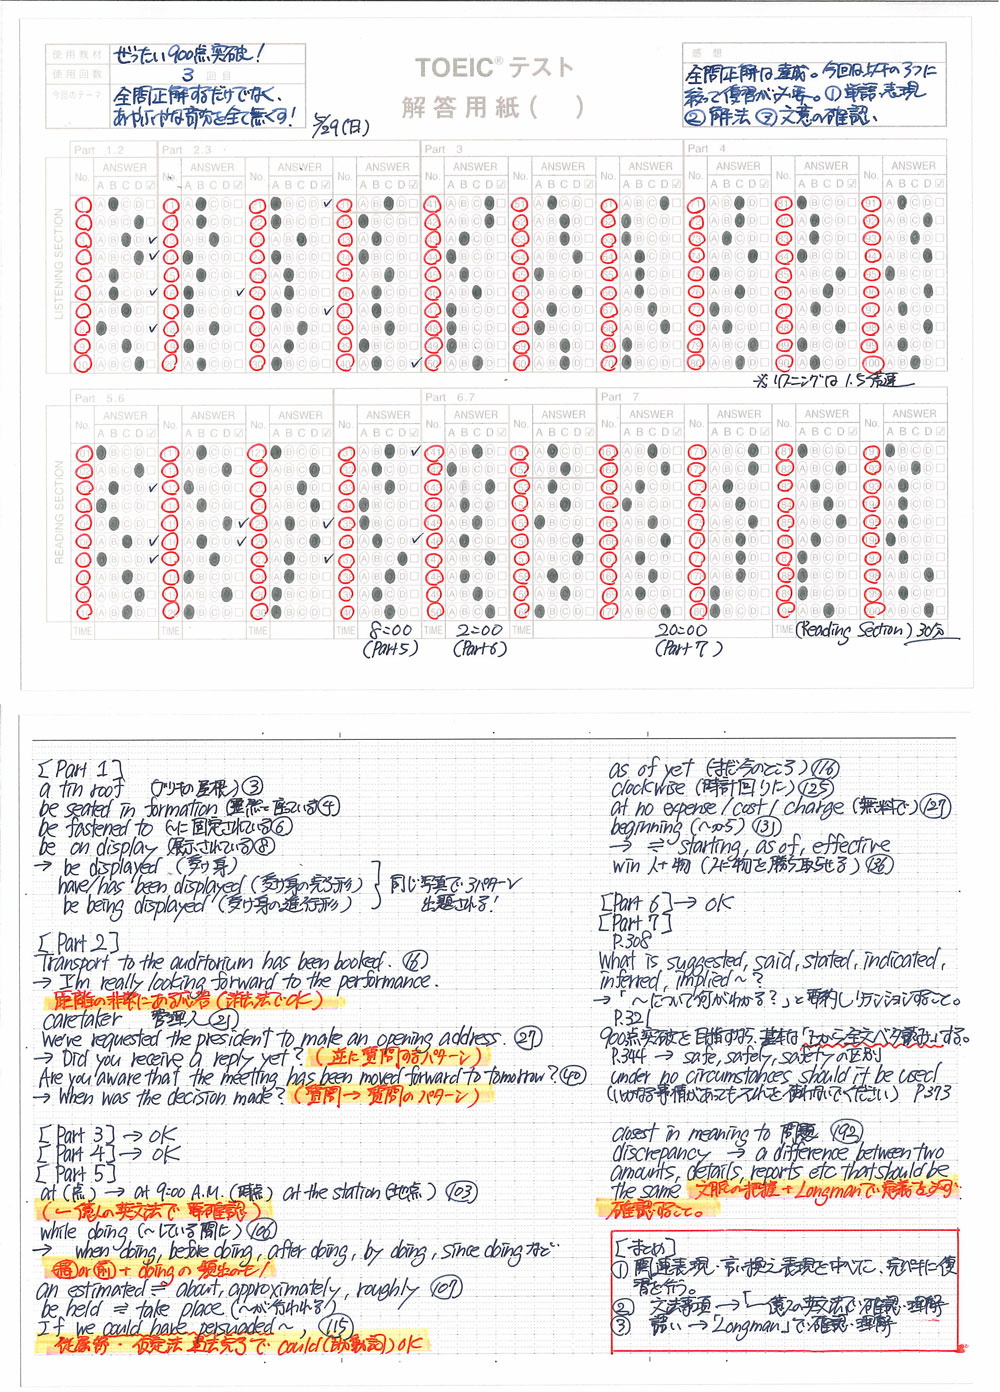 使用教材 ぜったい900点突破!
使用回数 3 回目
今回のテーマ 全問正解するだけでなく、
あやふやな部分を全て無くす!
5/29(日)
TOEIC®テスト
解答用紙( )
感想
全問正解は達成。今回は以下の3つに
絞って復習が必要。①単語・表現
②解法 ③文意の確認
Part 1.2 Part 2.3 Part 3 Part 4
No. ANSWER
A B C D
LISTENING SECTION
※リスニングは1.5倍速
Part 5.6 Part 6.7 Part 7
No. ANSWER
A B C D
READING SECTION
TIME TIME 8=00 2=00 TIME 20=00 TIME (Reading Section) 30分
(Part5) (Part6) (Part7)
[Part 1]
a tin roof (ブリキの屋根)③
be seated in formation (整然と座っている④
be fastened to (〜に固定されている⑥
be on display (展示されている⑧
→ be displayed (受け身)
have/has been displayed (受け身の完了形)
be being displayed (受け身の進行形)
同じ写真で3パターン
出題される!
[Part 2]
Transport to the auditorium has been booked. ⑯
→ I'm really looking forward to the performance.
距離の非常にある応答(消去法でOK)
caretaker 管理人㉑
We've requested the president to make an opening address. ㉗
→ Did you receive a reply yet? (逆に質問するパターン)
Are you aware that the meeting has been moved forward to tomorrow? ㊵
→ When was the decision made? (質問→質問のパターン)
[Part 3]→OK
[Part 4]→OK
[Part 5]
at (点) → at 9:00 A.M. (時点) at the station (地点) (103)
(一億人の英文法で再確認)
while doing (〜している間に) (106)
→ when doing, before doing, after doing, by doing, since doing など
+ doing の頻出のモノ!
an estimated ⇌ about, approximately, roughly (107)
be held ⇌ take place (〜が行われる)
If we could have persuaded 〜, (115)
従属節・仮定法過去完了で could (助動詞) OK
as of yet (まだ今のところ) (116)
clockwise (時計回りに) (125)
at no expense / cost / charge (無料で) (127)
beginning (〜から) (131)
→ ⇌ starting, as of, effective
win 人+物 (人に物を勝ち取らせる) (136)
[Part 6]→OK
[Part 7]
P.308
What is suggested, said, stated, indicated,
inferred, implied 〜?
→「〜について何がわかる?」と要約しリテンションすること。
P.321
900点突破を目指すなら、基本は「上から全文ベタ読み」する。
P.344 → safe, safely, safety の区別
under no circumstances should it be used
(いかなる事情があってもそれを使わないでください) P.373
closest in meaning to 問題 (192)
discrepancy → a difference between two
amounts, details, reports etc that should be
the same 文脈の把握+Longmanで意義を必ず
確認すること。
[まとめ]
① 関連表現・言い換え表現を中心に、完璧に復
習を行う。
② 文法事項→「一億人の英文法で確認・理解
③ 語い→「Longman」で確認・理解